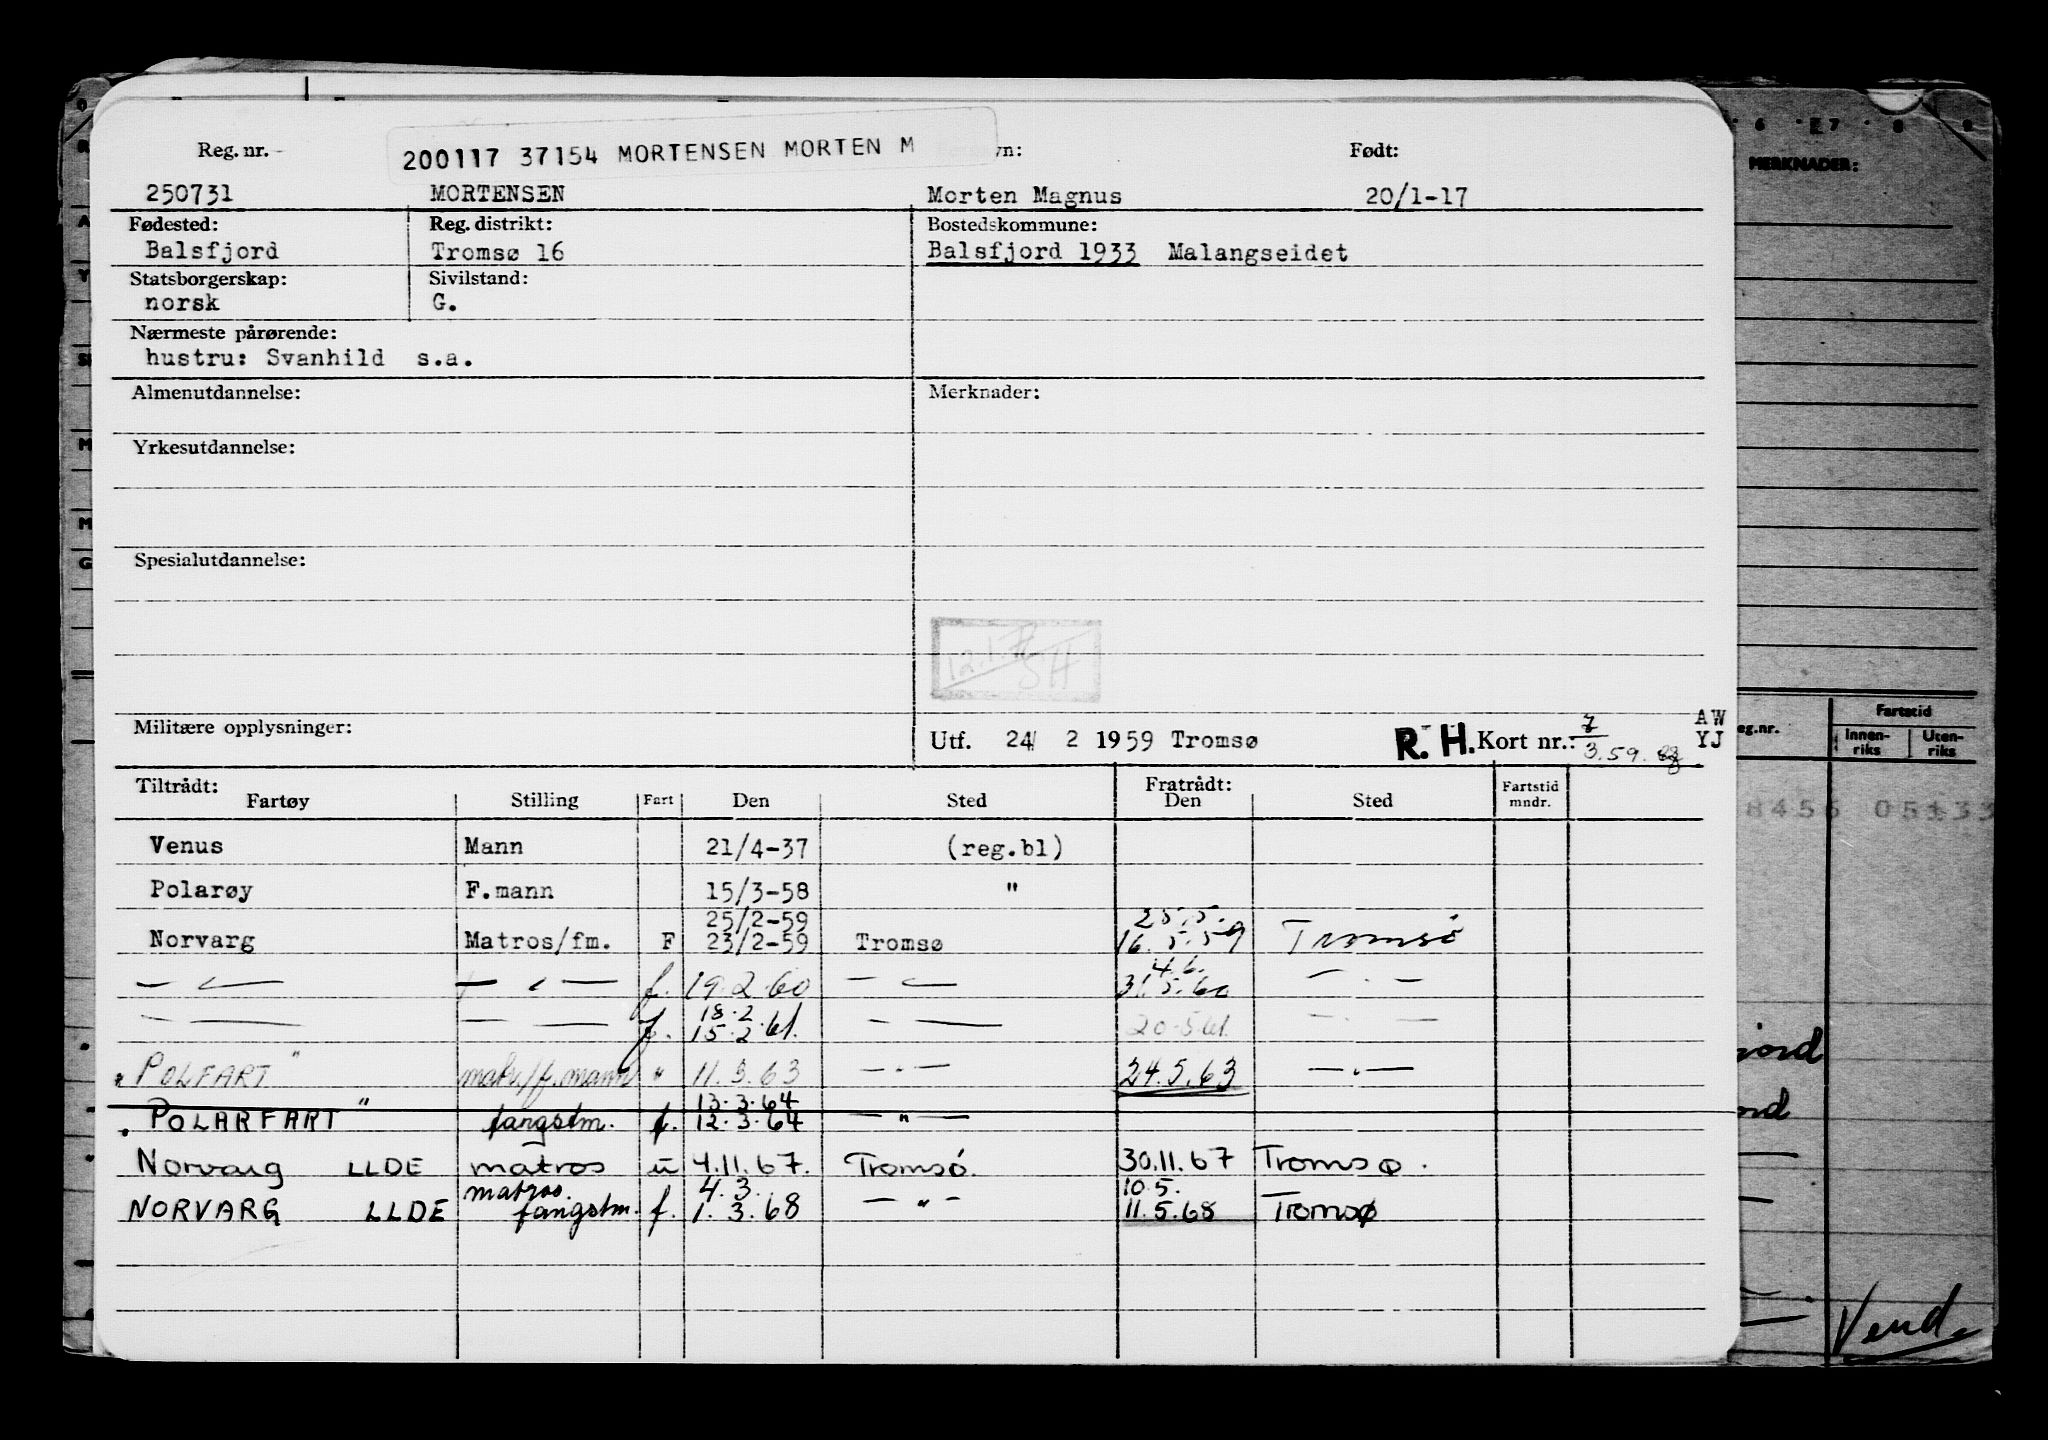 Reg. nr.
200117 37154 MORTENSEN MORTEN M
Født:
250731 MORTENSEN Morten Magnus 20/1-17
Fødested: Reg. distrikt: Bostedskommune:
Balsfjord Tromsø 16 Balsfjord 1933 Malangseidet
Statsborgerskap: Sivilstand:
norsk G.
Nærmeste pårørende:
hustru: Svanhild s.a.
Almenutdannelse: Merknader:
Yrkesutdannelse:
Spesialutdannelse:
12.1.
SH
Militære opplysninger:
Utf. 24/ 2 1959 Tromsø R. H. Kort nr.: 3.59. AW YJ
Tiltrådt: Fratrådt:
Fartøy Stilling Fart Den Sted Den Sted Fartstid mndr.
Venus Mann 21/4-37 (reg.bl)
Polarøy F.mann 15/3-58 "
25/2-59 25.5.
Norvarg Matros/fm. F 23/2-59 Tromsø 16.5.59 Tromsø
4.6.
— " — — " — f. 19.2.60 — " — 31.5.60 — . —
18.2.
— — — — f. 15.2.61. — — 20.5.61. — . —
POLFART " matr./f.mann " 11.3.63 — " — 24.5.63 — " —
13.3.64
POLARFART " fangstm. f. 12.3.64 — " —
Norvarg LLDE matros u 4.11.67. Tromsø. 30.11.67 Tromsø.
matros. 4.3. 10.5.
NORVARG LLDE fangstm. f. 1.3.68 — " — 11.5.68 Tromsø
6 7 8 9
MERKNADER:
Fartstid
eg.nr. Innen-riks Uten-riks
8456 05133
jord
Vend